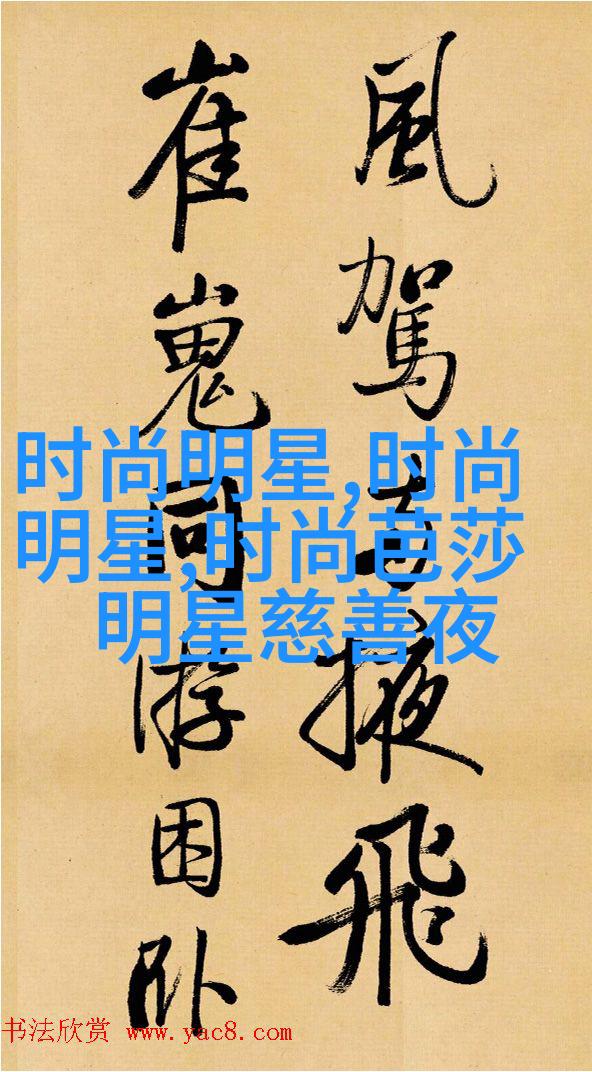 風駕掖飛
崔嵬同游困卧
时尚明星,时尚
明星,时尚芭莎
明星慈善夜
书法欣赏 www.yac8.com